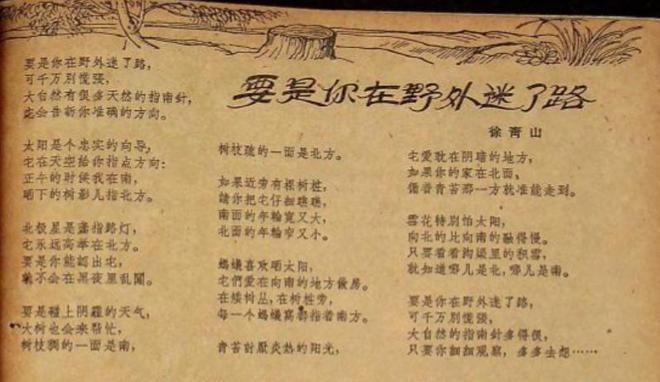 要是你在野外迷了路
徐青山
要是你在野外迷了路，
可千万别慌张，
大自然有很多天然的指南針，
它会告訴你准确的方向。
太阳是个忠实的向导，
它在天空給你指点方向：
正午的时候我在南，
晒下的树影儿指北方。
北极星是盞指路灯，
它永远高举在北方。
要是你能認出它，
就不会在黑夜里乱闖。
要是碰上阴霾的天气，
大树也会来帮忙，
树枝稠的一面是南，
树枝疏的一面是北方。
如果近旁有棵树桩，
請你把它仔細瞧瞧，
南面的年輪寬又大，
北面的年輪窄又小。
螞蟻喜欢晒太阳，
它們爱在向南的地方做房。
在矮树丛，在树桩旁，
每一个螞蟻窩都指着南方。
青苔討厌炎热的阳光，
它爱耽在阴暗的地方，
如果你的家在北面，
傍着青苔那一方就准能走到。
雪花特別怕太阳，
向北的比向南的融得慢。
只要看看沟渠里的积雪，
就知道哪儿是北，哪儿是南。
要是你在野外迷了路，
可千万别慌張，
大自然的指南針多得很，
只要你細細观察，多多去想……